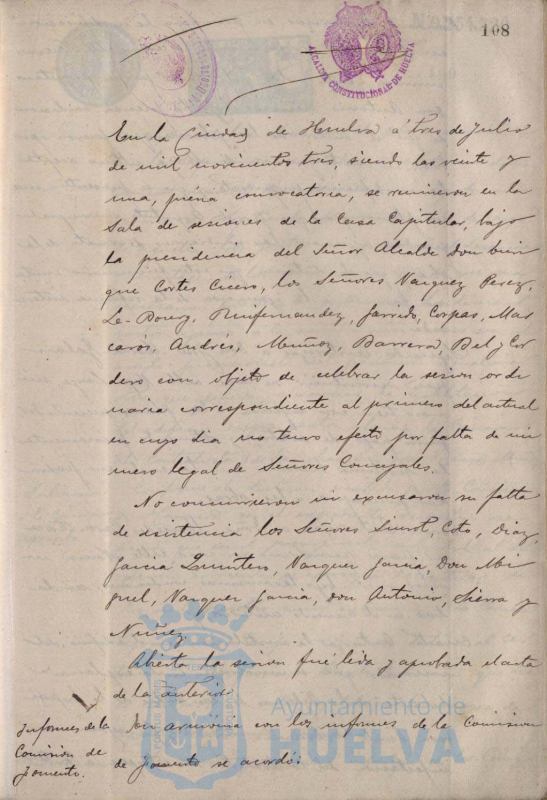 108
ALCALDIA CONSTITUCIONAL DE HUELVA
En la Ciudad de Huelva á tres de Julio
de mil novecientos tres, siendo las veinte y
una, prévia convocatoria, se reunieron en la
Sala de sesiones de la Casa Capitular, bajo
la presidencia del Señor Alcalde Don Enri
que Cortes Cicero, los Señores Vazquez Perez,
Le-Bourg, Ruifernandez, Garrido, Corpas, Mas
carós, Andrés, Muñoz, Barrera, Bel y Cor
dero con objeto de celebrar la sesion ordi
naria correspondiente al primero del actual
en cuyo dia no tuvo efecto por falta de nú
mero legal de Señores Concejales.
No concurrieron ni excusaron su falta
de asistencia los Señores Siurot, Coto, Diaz,
Garcia Quintero, Vazquez Garcia, Don Mi
guel, Vazquez Garcia, Don Antonio, Sierra y
Nuñez
Abierta la sesion fué leida y aprobada el acta
de la anterior
Informes de la
Comision de
Fomento.
En armonia con los informes de la Comision
de Fomento se acordó:
Ayuntamiento de
HUELVA